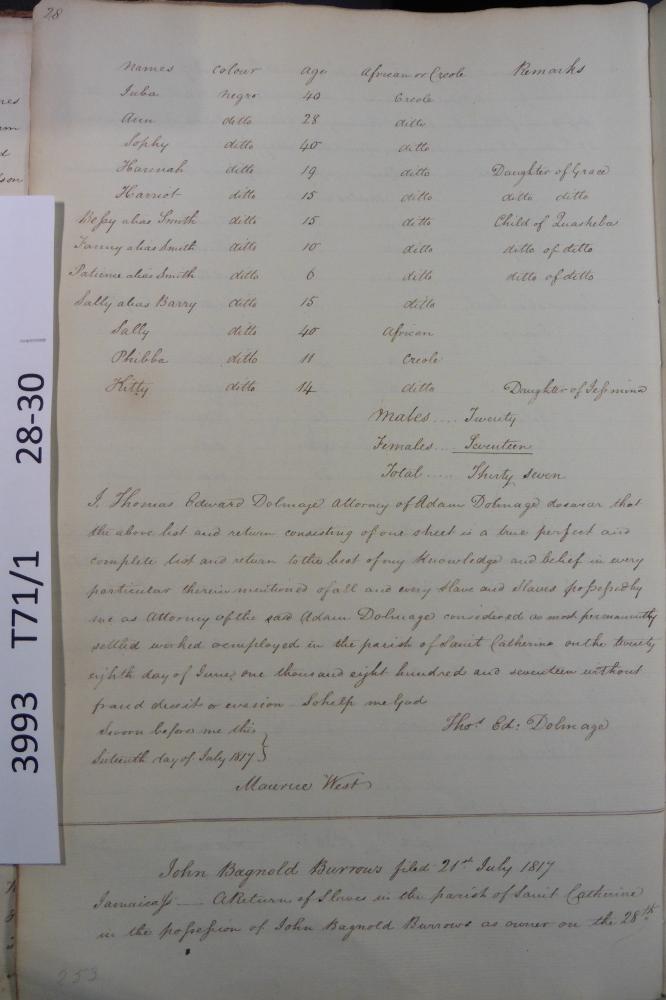 28
Names colour age African or Creole Remarks
Juba Negro 40 Creole
Ann ditto 28 ditto
Sophy ditto 40 ditto
Hannah ditto 19 ditto Daughter of Grace
Harriot ditto 15 ditto ditto ditto
Bessy alias Smith ditto 15 ditto Child of Quasheba
Fanny alias Smith ditto 10 ditto ditto of ditto
Patience alias Smith ditto 6 ditto ditto of ditto
Sally alias Barry ditto 15 ditto
Sally ditto 40 African
Phibba ditto 11 Creole
Kitty ditto 14 ditto Daughter of Jessmina
Males .... Twenty
Females ... Seventeen
Total ..... Thirty seven
I, Thomas Edward Dolmage Attorney of Adam Dolmage do swear that
the above list and return consisting of one sheet is a true perfect and
complete list and return to the best of my Knowledge and belief in every
particular therein mentioned of all and every Slave and Slaves possessed by
me as Attorney of the said Adam Dolmage considered as most permanently
settled worked or employed in the parish of Saint Catherine on the twenty
eighth day of June, one thousand eight hundred and seventeen without
fraud deceit or evasion So help me God
Sworn before me this Thos. Ed: Dolmage
Sixteenth day of July 1817
Maurice West
John Bagnold Burrows filed 21st July 1817
Jamaica Ss — A Return of Slaves in the parish of Saint Catherine
in the possession of John Bagnold Burrows as owner on the 28th
253
3993 T71/1 28-30